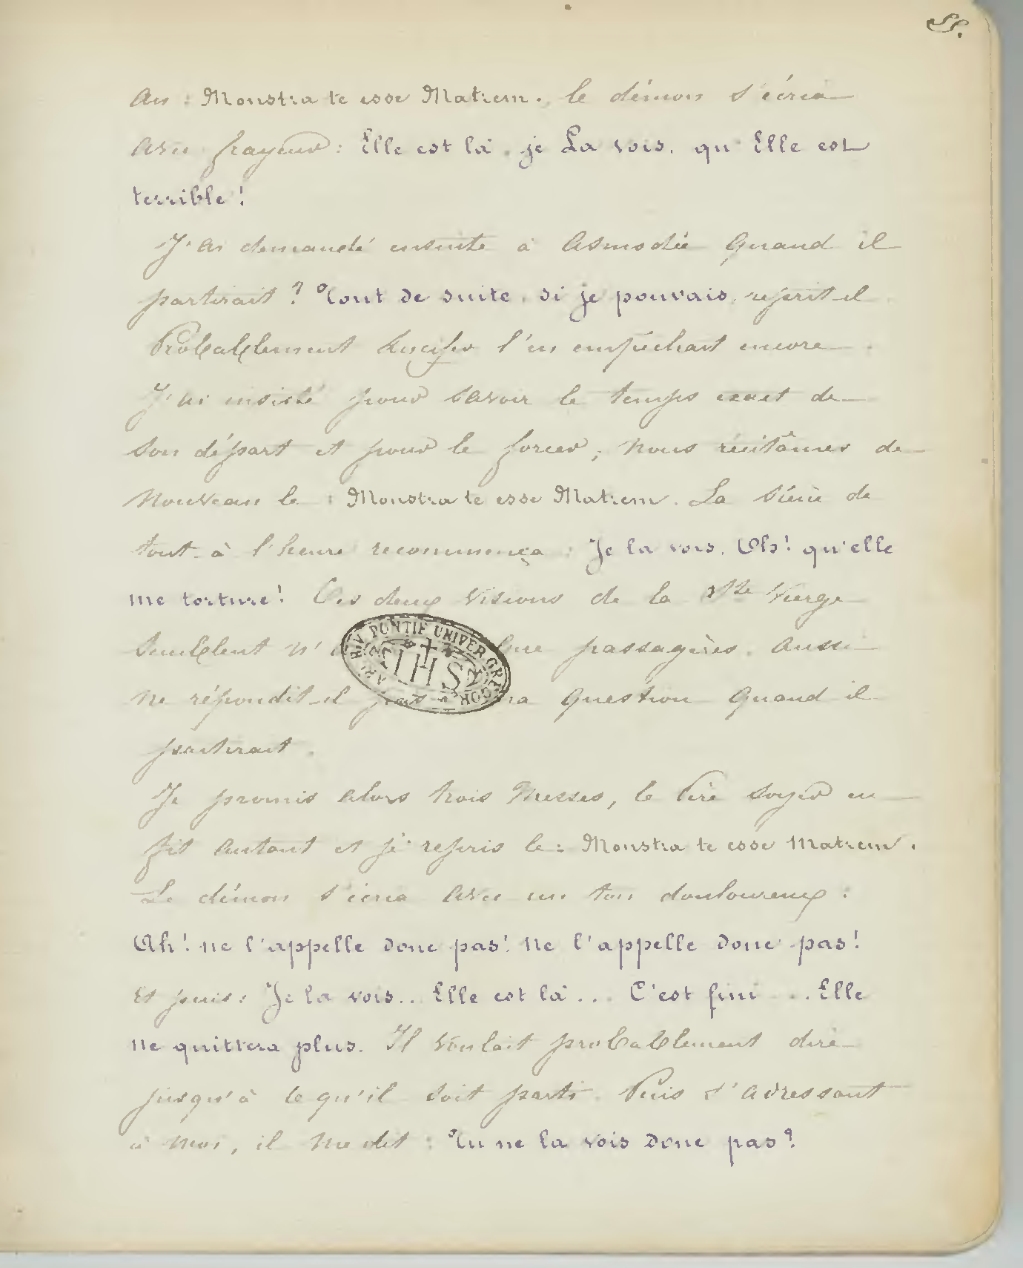 55.
Au : Monstra te esse Matrem, le démon s'écria
avec frayeur : Elle est là, je La vois, qu'Elle est
terrible !
J'ai demandé ensuite à Asmodée quand il
partirait ? Tout de suite, si je pouvais, reprit-il
Probablement Lucifer l'en empêchait encore.
J'ai insisté pour savoir le temps exact de
son départ et pour le forcer, nous récitâmes de
nouveau le : Monstra te esse Matrem. La scène de
tout à l'heure recommença : Je la vois. Oh ! qu'elle
me torture ! Ces deux visions de la Ste Vierge
semblent n' que passagères, aussi
ne répondit-il ma question quand il
partirait.
Je promis alors trois Messes, le Père Soyer en
fit autant et je repris le : Monstra te esse Matrem.
Le démon s'écria avec un ton douloureux :
Ah ! ne l'appelle donc pas ! Ne l'appelle donc pas !
Et puis : Je la vois.. Elle est là ... C'est fini ... Elle
ne quittera plus. Il voulait probablement dire
jusqu'à ce qu'il soit parti. Puis s'adressant
à moi, il me dit : Tu ne la vois donc pas ?
ARCHIV. PONTIF. UNIVER. GREGOR.
IHS